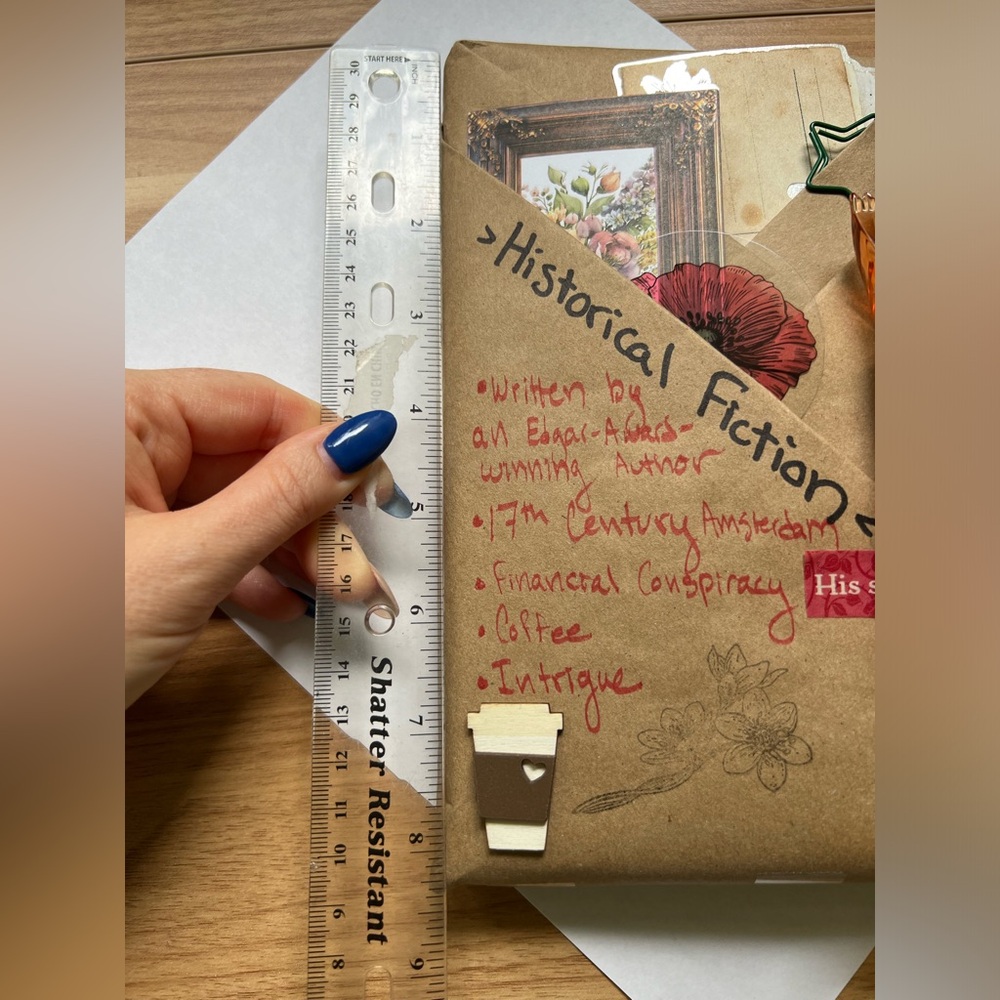 START HERE
INCH
30
29
28
27
26
25
24
23
22
21
17
16
15
14
13
12
11
10
9
8
2
3
4
5
6
7
8
9
Shatter Resistant
>Historical Fiction<
•Written by
an Edgar-Award-
winning Author
•17th Century Amsterdam
•Financial Conspiracy
•Coffee
•Intrigue
His s